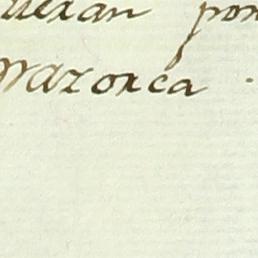 dexan pon
Mazorca.